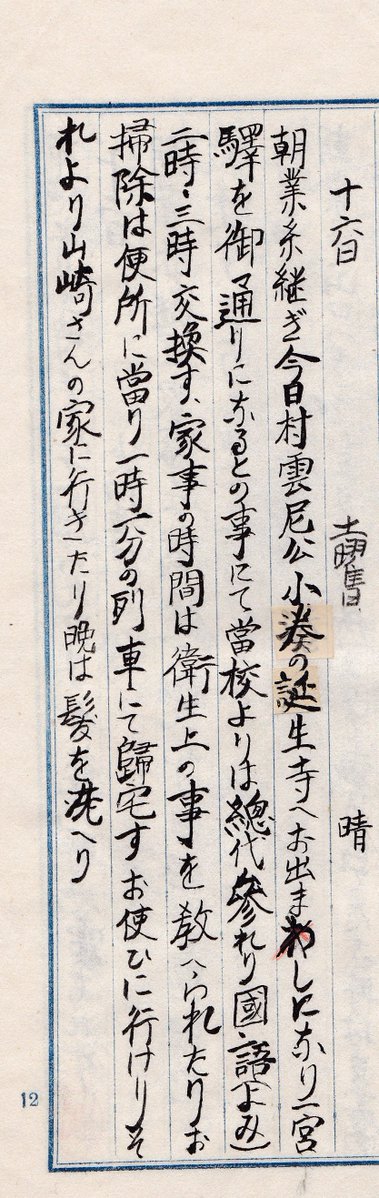 十六日　土曜日　晴
朝業糸継ぎ今日村雲尼公小湊の誕生寺へお出ましになり一宮
驛を御通りになるとの事にて當校よりは總代參れり國語(よみ)
二時、三時交換す、家事の時間は衛生上の事を教へられたりお
掃除は便所に當り一時一分の列車にて歸宅すお使ひに行けりそ
れより山崎さんの家に行きたり晩は髮を洗へり
12